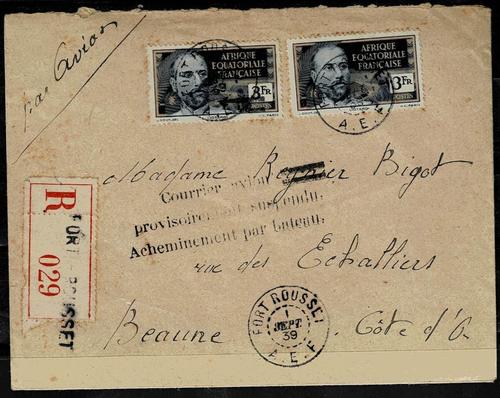 par avion
AFRIQUE
EQUATORIALE
FRANÇAISE
3 FR
POSTES
AFRIQUE
EQUATORIALE
FRANÇAISE
3 FR
POSTES
A.E.F
Madame Regnier Bigot
Courrier avion
provisoirement suspendu.
Acheminement par bateau.
R
029
FORT-ROUSSET
rue des Echalliers
FORT ROUSSET
1
SEPT
39
A.E.F
Beaune Côte d'Or